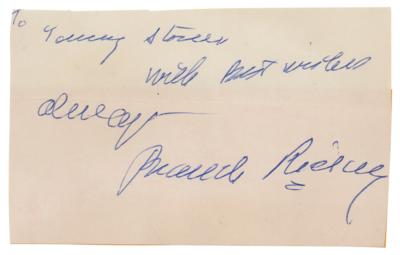 To
Tommy Stoner
with best wishes
always
Branch Rickey